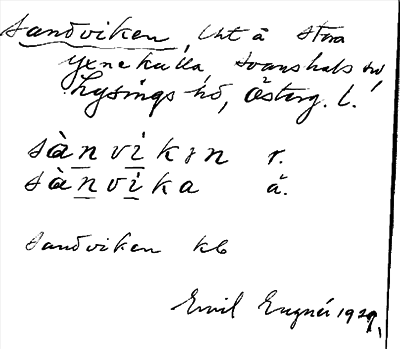 Sandviken, lht å stora
Yxnekulla, Svanshals sn,
Lysings hd, Österg. l.
sànvikən r.
sànvika å.
Sandviken kb
Emil Engnér 1929.